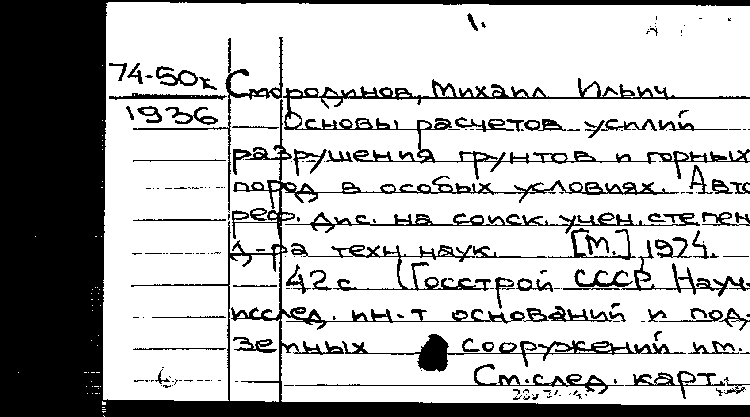 1.
74-50к Смородинов, Михаил Ильич.
1936 Основы расчетов усилий
разрушения грунтов и горных
пород в особых условиях. Авто
реф. дис. на соиск. учен. степен
д-ра техн. наук. [М.], 1974.
42 с. (Госстрой СССР. Науч.-
исслед. ин-т оснований и под-
земных сооружений им.
См. след. карт.